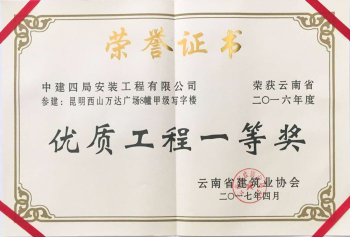 荣誉证书
中建四局安装工程有限公司
参建：昆明西山万达广场8幢甲级写字楼
荣获云南省
二〇一六年度
优质工程一等奖
云南省建筑业协会
二〇一七年四月